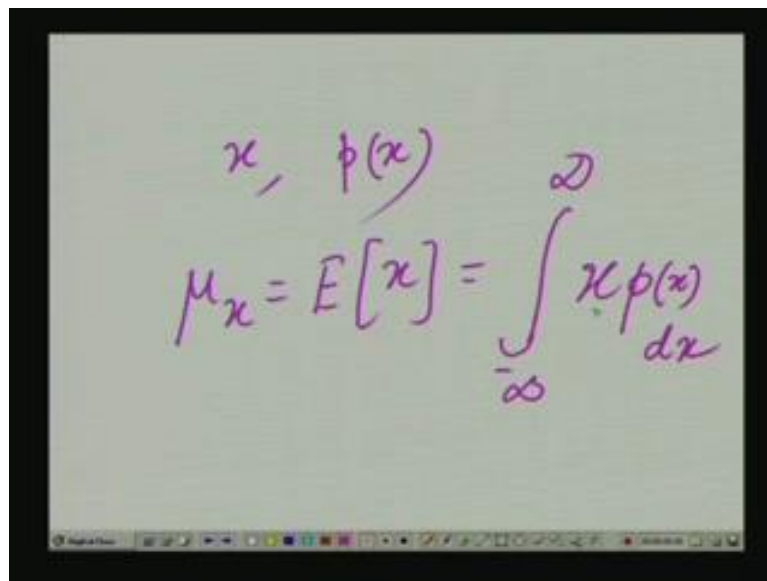 x, p(x)
μₓ = E[x] = ∫_{-∞}^{∞} x p(x) dx